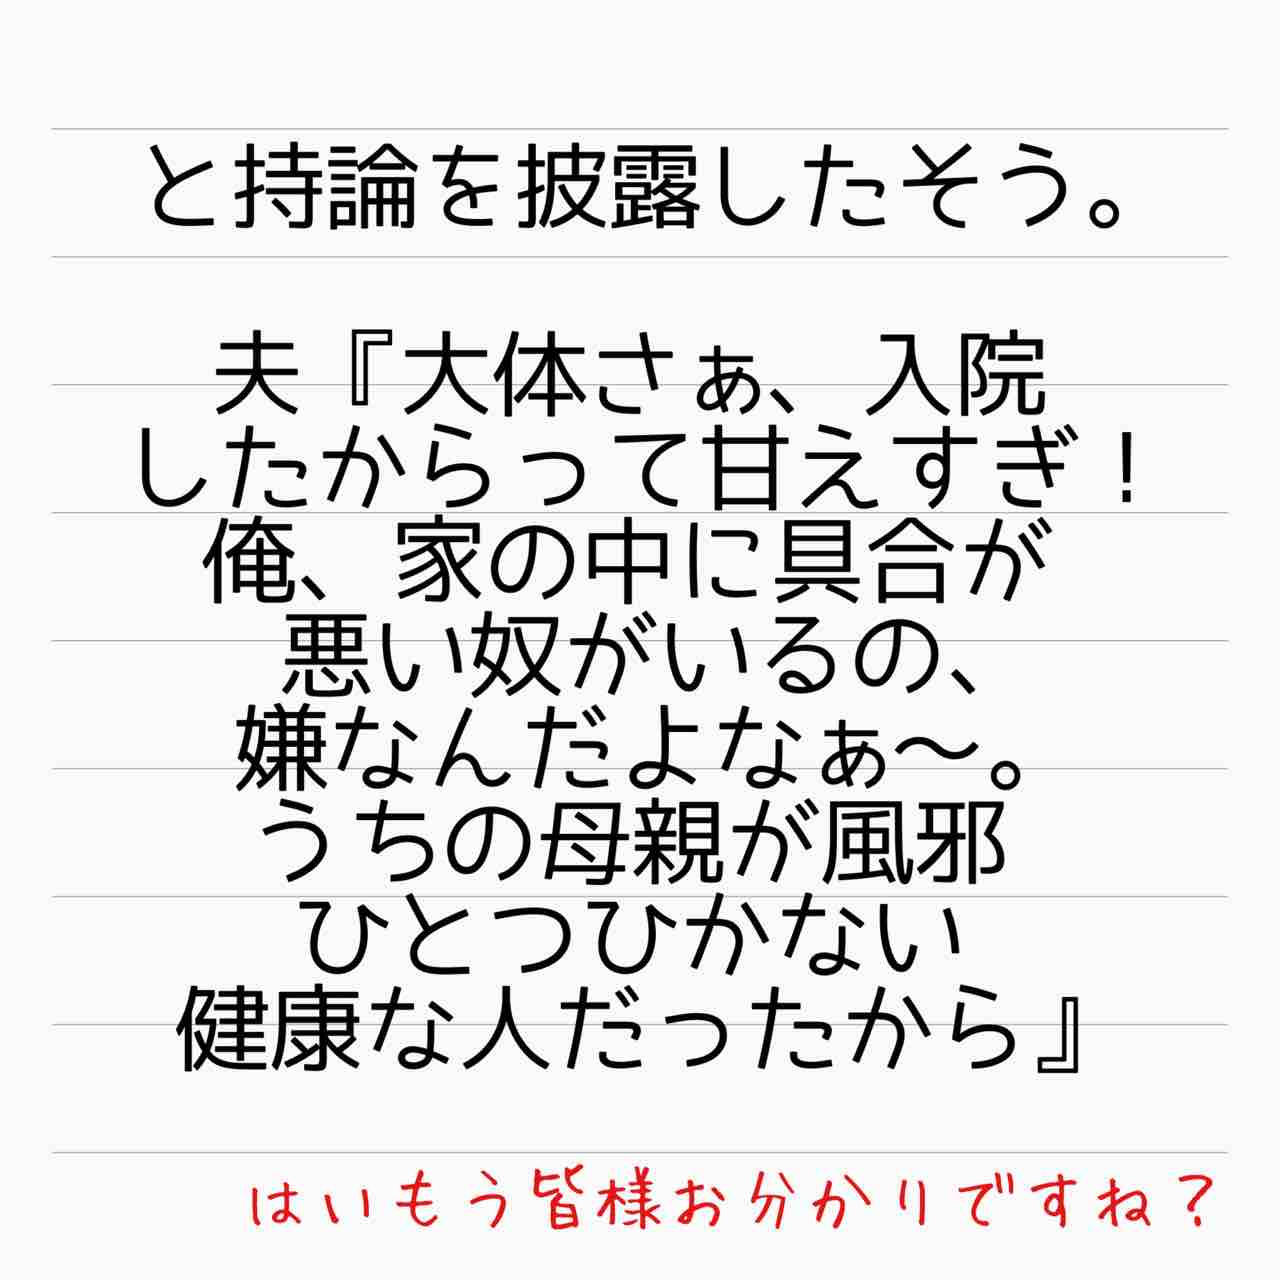 と持論を披露したそう。
夫『大体さぁ、入院
したからって甘えすぎ！
俺、家の中に具合が
悪い奴がいるの、
嫌なんだよなぁ〜。
うちの母親が風邪
ひとつひかない
健康な人だったから』
はいもう皆様お分かりですね？